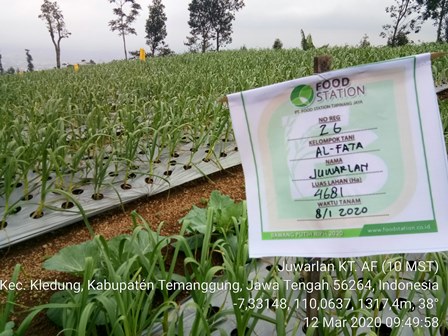 FOOD
STATION
PT. FOOD STATION TJIPINANG JAYA
NO REG
26
KELOMPOK TANI
AL-FATA
NAMA
JUWARLAN
LUAS LAHAN (Ha)
4681
WAKTU TANAM
8/1 2020
BAWANG PUTIH
www.foodstation.co.id
Juwarlan KT. AF (10 MST)
Kec. Kledung, Kabupaten Temanggung, Jawa Tengah 56264, Indonesia
-7,33148, 110,0637, 1317,4m, 38°
12 Mar 2020 09:49:58